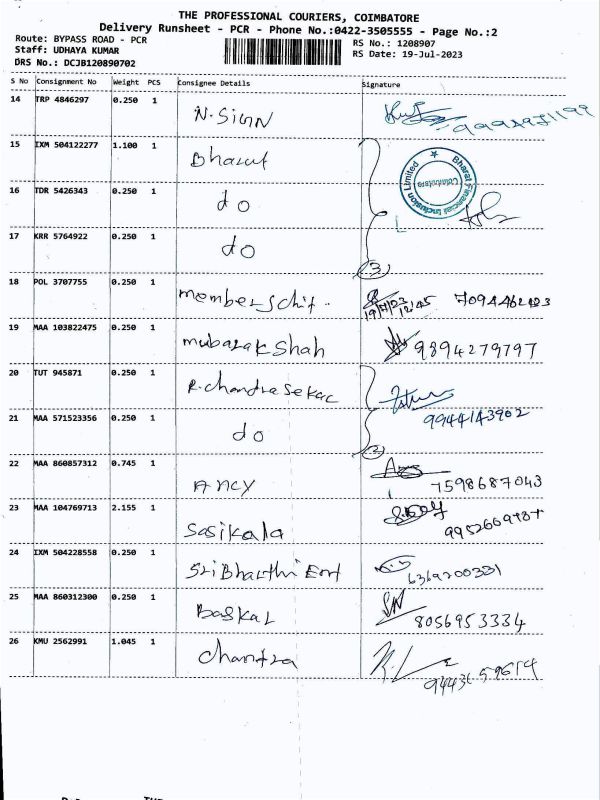 THE PROFESSIONAL COURIERS, COIMBATORE
Delivery Runsheet - PCR - Phone No.:0422-3505555 - Page No.:2
Route: BYPASS ROAD - PCR RS No.: 1208907
Staff: UDHAYA KUMAR RS Date: 19-Jul-2023
DRS No.: DCJB120890702
S No Consignment No Weight PCS Consignee Details Signature
14 TRP 4846297 0.250 1 N. Sign
15 IXM 504122277 1.100 1 Bharat
Bharat Financial Inclusion Limited
Coimbatore
16 TDR 5426343 0.250 1 do
17 KRR 5764922 0.250 1 do
(3)
18 POL 3707755 0.250 1 memberschit.. 19/7/23 12/45
19 MAA 103822475 0.250 1 mubarak shah 9894279797
20 TUT 945871 0.250 1 R. chandrasekar
21 MAA 571523356 0.250 1 do 9944143902
(2)
22 MAA 860857312 0.745 1 Ancy 7598687043
23 MAA 104769713 2.155 1 Sasikala
24 IXM 504228558 0.250 1 Sri Bharthi Ent 6369200331
25 MAA 860312300 0.250 1 Baskar 8056953334
26 KMU 2562991 1.045 1 chandra